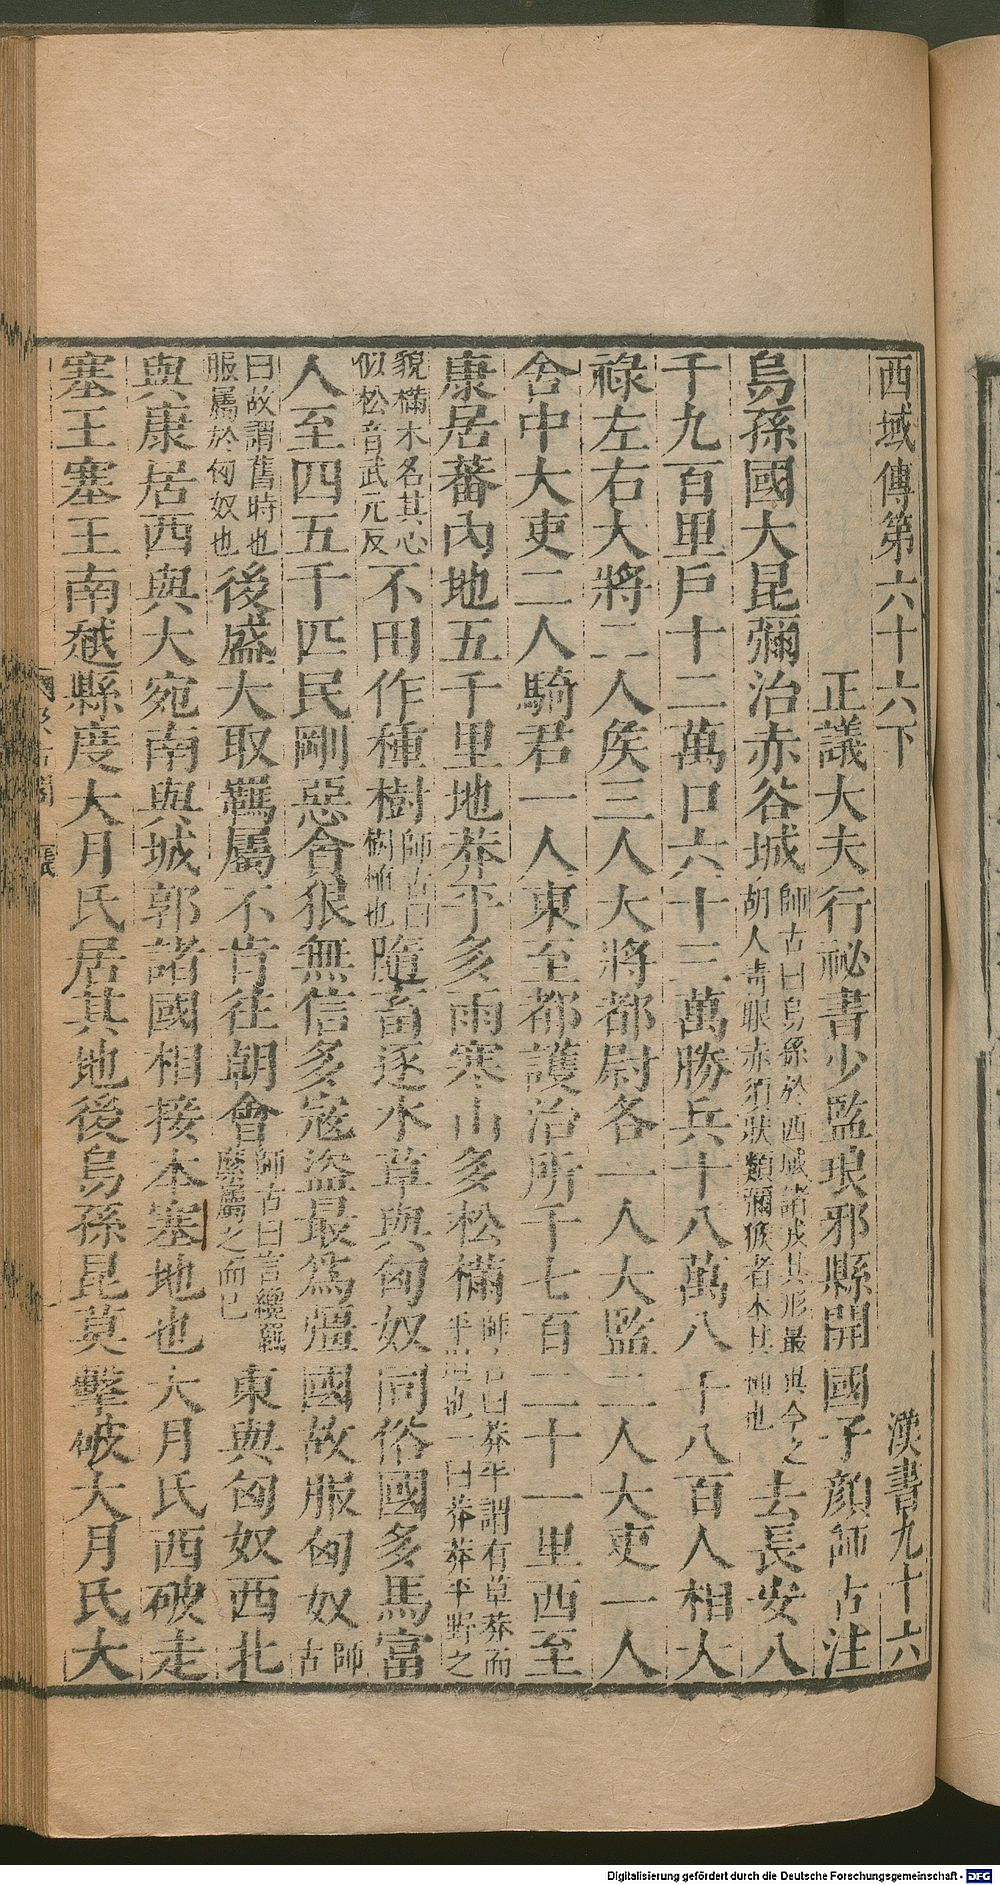 西域傳第六十六下　漢書九十六
正議大夫行祕書少監琅邪縣開國子顔師古注
烏孫國大昆彌治赤谷城師古曰烏孫於西域諸戎其形最異今之胡人青眼赤須狀類彌猴者本其種也去長安八
千九百里戶十二萬口六十三萬勝兵十八萬八千八百人相大
祿左右大將二人侯三人大將都尉各一人大監二人大吏一人
舍中大吏二人騎君一人東至都護治所千七百二十一里西至
康居蕃內地五千里地莽平多雨寒山多松樠師古曰莽平謂有草莽而平坦也一曰莽莽平野之
貌樠木名其心似松音武元反不田作種樹師古曰樹植也隨畜逐水草與匈奴同俗國多馬富
人至四五千匹民剛惡貪狠無信多寇盜最爲彊國故服匈奴師古
曰故謂舊時也服屬於匈奴也後盛大取羈屬不肯往朝會師古曰言纔羈縻屬之而已東與匈奴西北
與康居西與大宛南與城郭諸國相接本塞地也大月氏西破走
塞王塞王南越縣度大月氏居其地後烏孫昆莫擊破大月氏大
Digitalisierung gefördert durch die Deutsche Forschungsgemeinschaft - DFG